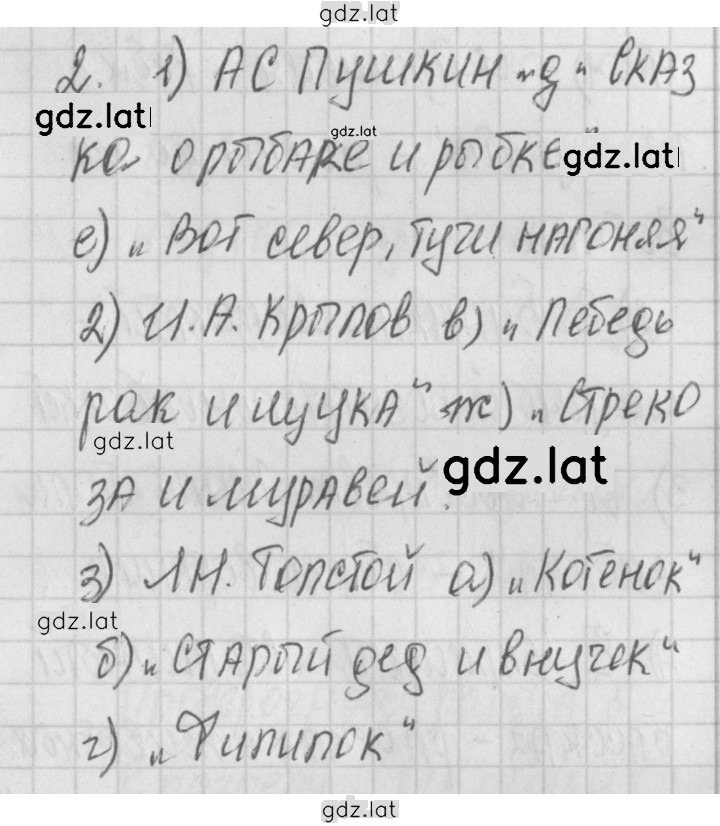 gdz.lat
2. 1) А С ПУШКИН „д „ СКАЗ
gdz.lat
gdz.lat
ка о рыбаке и рыбке"
gdz.lat
е) „ Вот север, тучи нагоняя"
2) И.А. Крылов в) „ Лебедь
рак и щука" ж) „ Стреко
gdz.lat
за и муравей.
gdz.lat
3) Л Н. Толстой а) „Котенок"
gdz.lat
б) „ Старый дед и внучек"
г) „ Филипок"
gdz.lat